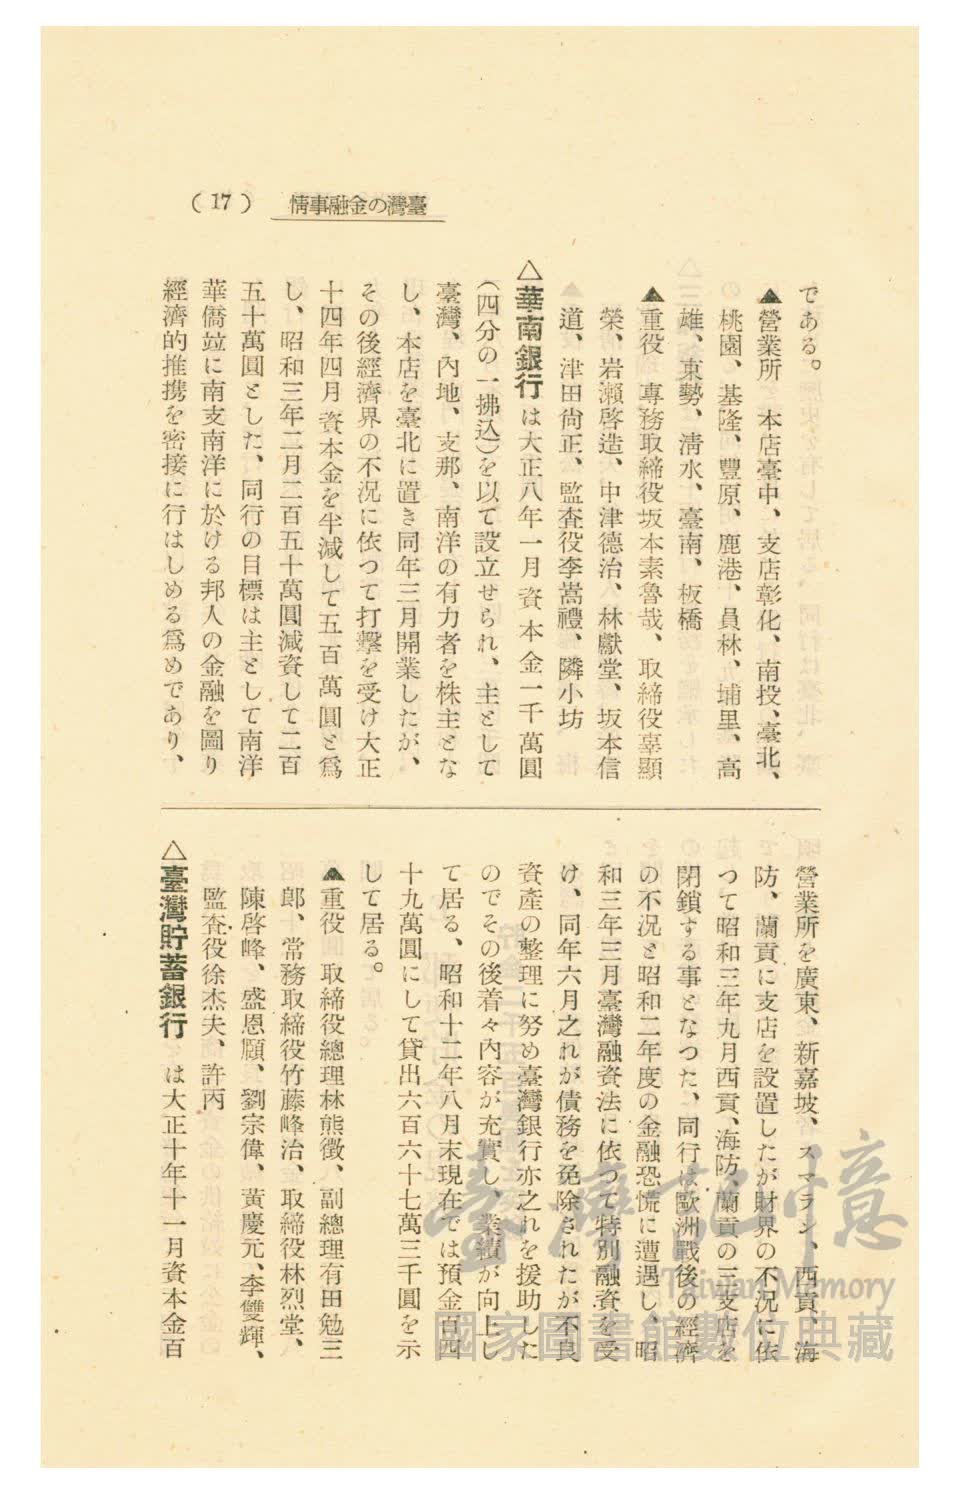 臺灣の金融事情 (17)
である。
▲營業所 本店臺中、支店彰化、南投、臺北、
桃園、基隆、豐原、鹿港、員林、埔里、高
雄、東勢、清水、臺南、板橋
▲重役 專務取締役坂本素魯哉、取締役辜顯
榮、岩瀨啓造、中津德治、林獻堂、坂本信
道、津田尙正、監査役李嵩禮、隣小坊
△華南銀行は大正八年一月資本金一千萬圓
(四分の一拂込)を以て設立せられ、主として
臺灣、內地、支那、南洋の有力者を株主とな
し、本店を臺北に置き同年三月開業したが、
その後經濟界の不況に依つて打擊を受け大正
十四年四月資本金を半減して五百萬圓と爲
し、昭和三年二月二百五十萬圓減資して二百
五十萬圓とした、同行の目標は主として南洋
華僑竝に南支南洋に於ける邦人の金融を圖り
經濟的推携を密接に行はしめる爲めであり、
營業所を廣東、新嘉坡、スマラン、西貢、海
防、蘭貢に支店を設置したが財界の不況に依
つて昭和三年九月西貢、海防、蘭貢の三支店を
閉鎖する事となつた、同行は歐洲戰後の經濟
の不況と昭和二年度の金融恐慌に遭遇し、昭
和三年三月臺灣融資法に依つて特別融資を受
け、同年六月之れが債務を免除されたが不良
資產の整理に努め臺灣銀行亦之れを援助した
のでその後着々內容が充實し、業績が向上し
て居る、昭和十二年八月末現在では預金百四
十九萬圓にして貸出六百六十七萬三千圓を示
して居る。
▲重役 取締役總理林熊徵、副總理有田勉三
郎、常務取締役竹藤峰治、取締役林烈堂、
陳啓峰、盛恩願、劉宗偉、黃慶元、李雙輝、
監査役徐杰夫、許丙
△臺灣貯蓄銀行は大正十年十一月資本金百
臺灣記憶
Taiwan Memory
國家圖書館數位典藏